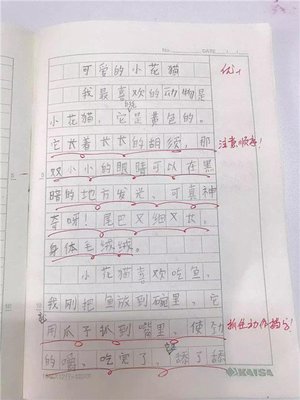 NO.          DATE    /    /
可爱的小花猫
我最喜欢的动物是
小花猫，它是黄色的。
它长着长长的胡须，那
双小小的眼睛可以在黑
暗的地方发光，可真神
奇呀！尾巴又细又长，
身体毛绒绒。
小花猫喜欢吃鱼，
我刚把鱼放到碗里，它
用爪子抓到嘴里，使劲
的嚼，吃完了，舔了舔
优+
注意顺序！
抓住动作描写！
KAISA